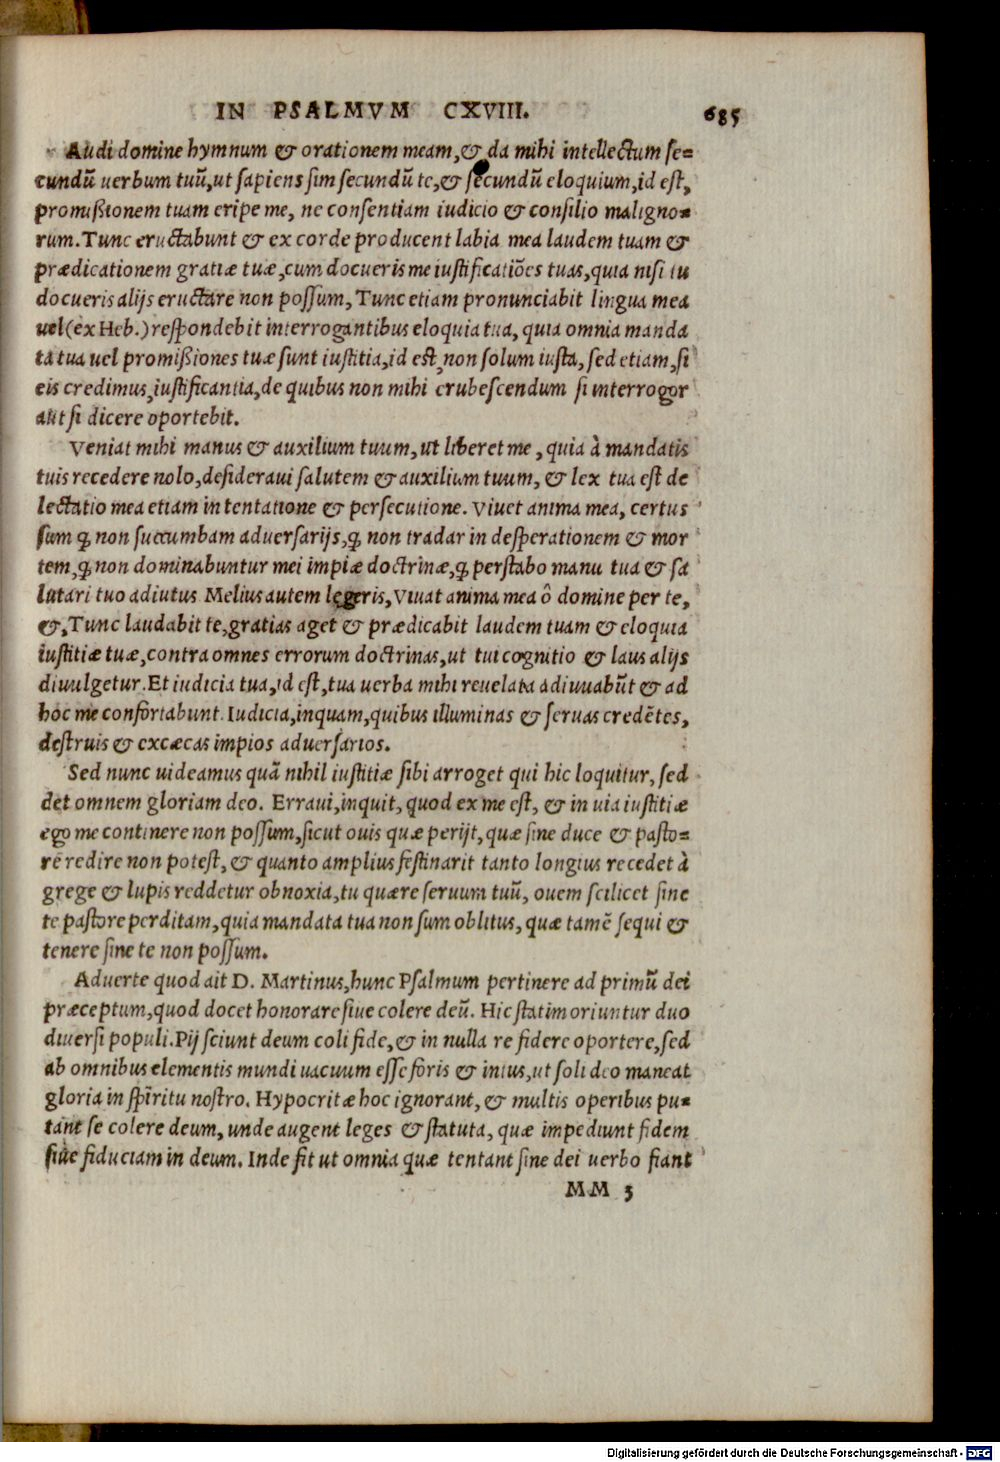 IN PSALMVM CXVIII. 685
Audi domine hymnum & orationem meam, & da mihi intellectum se=
cundũ uerbum tuũ, ut sapiens sim secundũ te, & secundũ eloquium, id est,
promißionem tuam eripe me, ne consentiam iudicio & consilio maligno=
rum. Tunc eructabunt & ex corde producent labia mea laudem tuam &
prædicationem gratiæ tuæ, cum docueris me iustificatiões tuas, quia nisi tu
docueris alijs eructare non possum, Tunc etiam pronunciabit lingua mea
uel (ex Heb.) respondebit interrogantibus eloquia tua, quia omnia manda
ta tua uel promißiones tuæ sunt iustitia, id est, non solum iusta, sed etiam, si
eis credimus, iustificantia, de quibus non mihi erubescendum si interrogor
aut si dicere oportebit.
Veniat mihi manus & auxilium tuum, ut liberet me, quia à mandatis
tuis recedere nolo, desideraui salutem & auxilium tuum, & lex tua est de
lectatio mea etiam in tentatione & persecutione. Viuet anima mea, certus
sum ꝙ non succumbam aduersarijs, ꝙ non tradar in desperationem & mor
tem, ꝙ non dominabuntur mei impiæ doctrinæ, ꝙ perstabo manu tua & sa
lutari tuo adiutus Melius autem legeris, Viuat anima mea ô domine per te,
&, Tunc laudabit te, gratias aget & prædicabit laudem tuam & eloquia
iustitiæ tuæ, contra omnes errorum doctrinas, ut tui cognitio & laus alijs
diuulgetur. Et iudicia tua, id est, tua uerba mihi reuelata adiuuabũt & ad
hoc me confortabunt. Iudicia, inquam, quibus illuminas & seruas credẽtes,
destruis & excæcas impios aduersarios.
Sed nunc uideamus quã nihil iustitiæ sibi arroget qui hic loquitur, sed
det omnem gloriam deo. Erraui, inquit, quod ex me est, & in uia iustitiæ
ego me continere non possum, sicut ouis quæ perijt, quæ sine duce & pasto=
re redire non potest, & quanto amplius festinarit tanto longius recedet à
grege & lupis reddetur obnoxia, tu quære seruum tuũ, ouem scilicet sine
te pastore perditam, quia mandata tua non sum oblitus, quæ tamẽ sequi &
tenere sine te non possum.
Aduerte quod ait D. Martinus, hunc Psalmum pertinere ad primũ dei
præceptum, quod docet honorare siue colere deũ. Hic statim oriuntur duo
diuersi populi. Pij sciunt deum coli fide, & in nulla re fidere oportere, sed
ab omnibus elementis mundi uacuum esse foris & intus, ut soli deo maneat
gloria in spĩritu nostro. Hypocritæ hoc ignorant, & multis operibus pu=
tant se colere deum, unde augent leges & statuta, quæ impediunt fidem
siue fiduciam in deum. Inde fit ut omnia quæ tentant sine dei uerbo fiant
MM 5
Digitalisierung gefördert durch die Deutsche Forschungsgemeinschaft - DFG